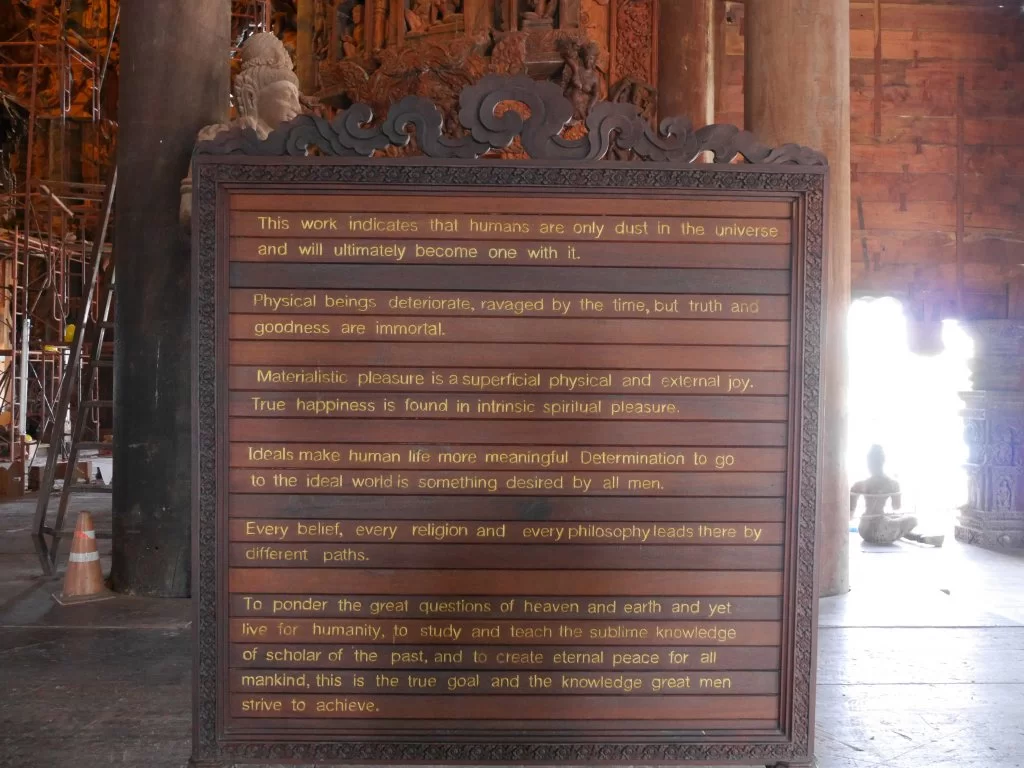 This work indicates that humans are only dust in the universe
and will ultimately become one with it.
Physical beings deteriorate, ravaged by the time, but truth and
goodness are immortal.
Materialistic pleasure is a superficial physical and external joy.
True happiness is found in intrinsic spiritual pleasure.
Ideals make human life more meaningful Determination to go
to the ideal world is something desired by all men.
Every belief, every religion and every philosophy leads there by
different paths.
To ponder the great questions of heaven and earth and yet
live for humanity, to study and teach the sublime knowledge
of scholar of the past, and to create eternal peace for all
mankind, this is the true goal and the knowledge great men
strive to achieve.